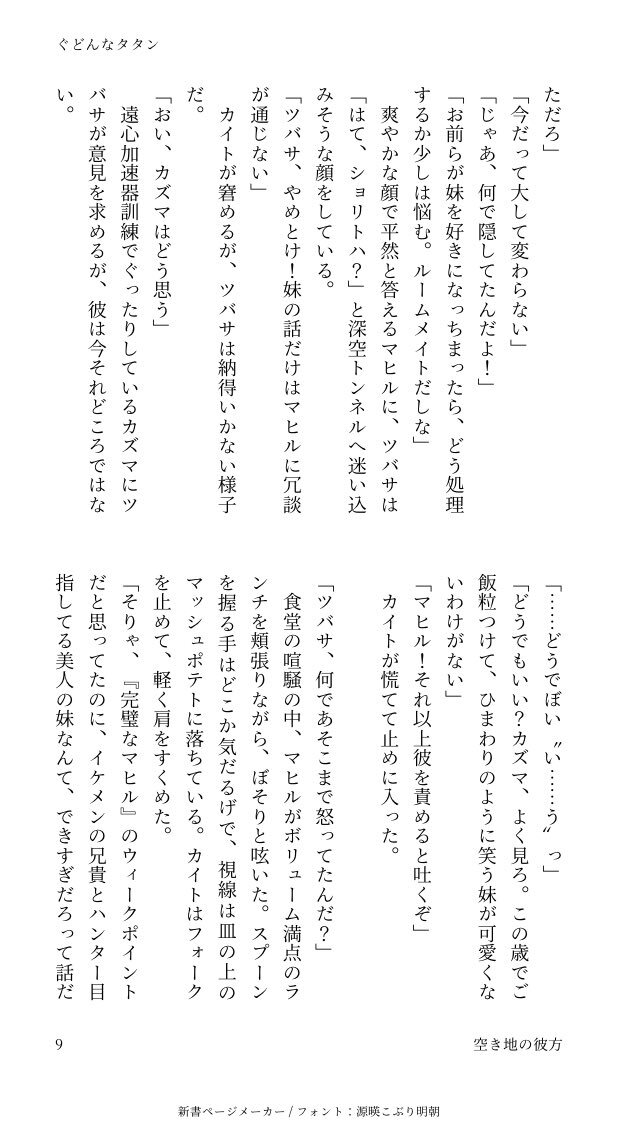 ぐどんなタタン
ただろ」
「今だって大して変わらない」
「じゃあ、何で隠してたんだよ！」
「お前らが妹を好きになっちまったら、どう処理
するか少しは悩む。ルームメイトだしな」
　爽やかな顔で平然と答えるマヒルに、ツバサは
「はて、ショリトハ？」と深空トンネルへ迷い込
みそうな顔をしている。
「ツバサ、やめとけ！妹の話だけはマヒルに冗談
が通じない」
　カイトが窘めるが、ツバサは納得いかない様子
だ。
「おい、カズマはどう思う」
　遠心加速器訓練でぐったりしているカズマにツ
バサが意見を求めるが、彼は今それどころではな
い。
「……どうでぼい〝い……う〟っ」
「どうでもいい？カズマ、よく見ろ。この歳でご
飯粒つけて、ひまわりのように笑う妹が可愛くな
いわけがない」
「マヒル！それ以上彼を責めると吐くぞ」
　カイトが慌てて止めに入った。
「ツバサ、何であそこまで怒ってたんだ？」
　食堂の喧騒の中、マヒルがボリューム満点のラ
ンチを頬張りながら、ぼそりと呟いた。スプーン
を握る手はどこか気だるげで、視線は皿の上の
マッシュポテトに落ちている。カイトはフォーク
を止めて、軽く肩をすくめた。
「そりゃ、『完璧なマヒル』のウィークポイント
だと思ってたのに、イケメンの兄貴とハンター目
指してる美人の妹なんて、できすぎだろって話だ
空き地の彼方
9
新書ページメーカー / フォント：源暎こぶり明朝